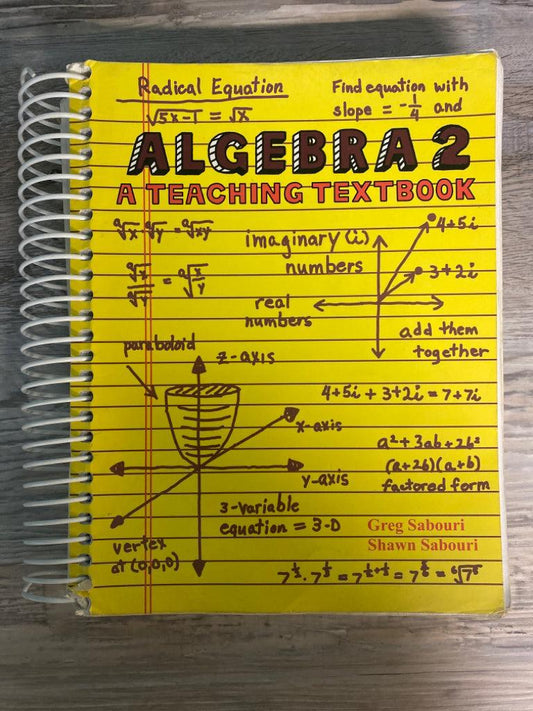 Radical Equation
√5x-1 = √x
Find equation with
slope = -1/4 and
ALGEBRA 2
A TEACHING TEXTBOOK
ᵃ√x · ᵃ√y = ᵃ√xy
ᵃ√x / ᵃ√y = ᵃ√x/y
imaginary (i)
numbers
4+5i
3+2i
real
numbers
add them
together
4+5i + 3+2i = 7+7i
paraboloid
z-axis
x-axis
y-axis
a²+3ab+2b²
(a+2b)(a+b)
factored form
3-variable
equation = 3-D
vertex
at (0,0,0)
Greg Sabouri
Shawn Sabouri
7^½ · 7^⅓ = 7^(½+⅓) = 7^⅚ = ⁶√7⁵